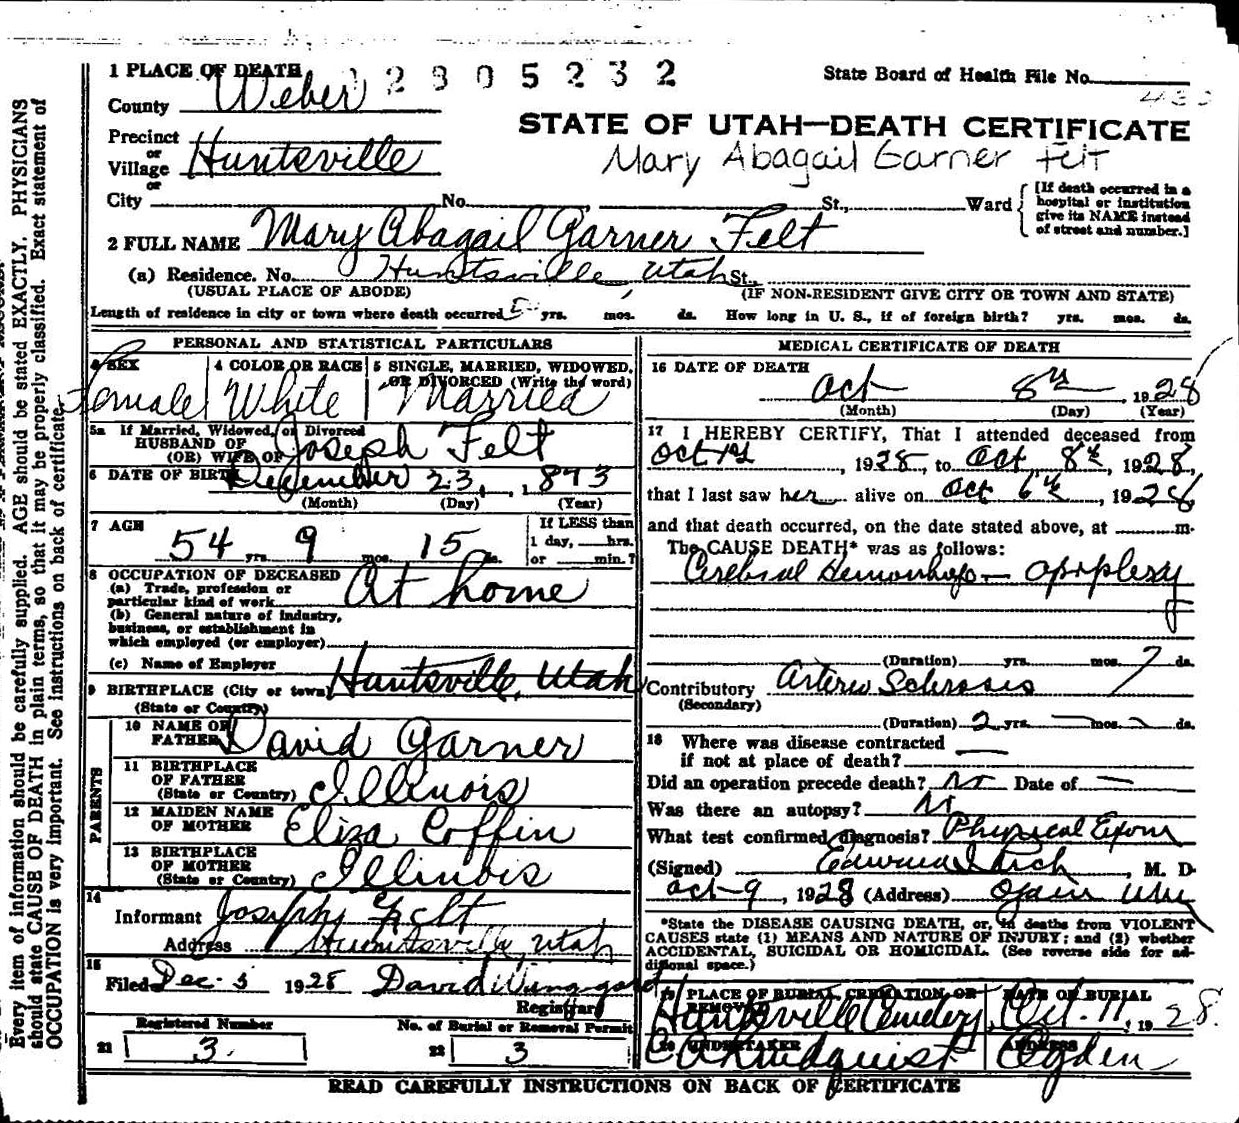 1 PLACE OF DEATH 2805232 State Board of Health File No.
County Weber
STATE OF UTAH—DEATH CERTIFICATE
Mary Abagail Garner Felt
Precinct
or
Village Huntsville
or
City No. St., Ward
[If death occurred in a
hospital or institution
give its NAME instead
of street and number.]
2 FULL NAME Mary Abagail Garner Felt
(a) Residence. No. Huntsville, Utah St.,
(USUAL PLACE OF ABODE) (IF NON-RESIDENT GIVE CITY OR TOWN AND STATE)
Length of residence in city or town where death occurred yrs. mos. ds. How long in U. S., if of foreign birth? yrs. mos. ds.
PERSONAL AND STATISTICAL PARTICULARS
SEX 4 COLOR OR RACE 5 SINGLE, MARRIED, WIDOWED,
OR DIVORCED (Write the word)
Female White Married
5a If Married, Widowed, or Divorced
HUSBAND OF
(OR) WIFE OF Joseph Felt
6 DATE OF BIRTH December 23, 1873
(Month) (Day) (Year)
7 AGE If LESS than
54 yrs. 9 mos. 15 ds. 1 day, hrs.
or min.?
8 OCCUPATION OF DECEASED
(a) Trade, profession or
particular kind of work At home
(b) General nature of industry,
business, or establishment in
which employed (or employer)
(c) Name of Employer
9 BIRTHPLACE (City or town) Huntsville, Utah
(State or Country)
PARENTS
10 NAME OF
FATHER David Garner
11 BIRTHPLACE
OF FATHER
(State or Country) Illinois
12 MAIDEN NAME
OF MOTHER Eliza Coffin
13 BIRTHPLACE
OF MOTHER
(State or Country) Illinois
14
Informant Joseph Felt
Address Huntsville, Utah
15
Filed Dec. 5 1928 David
Registrar
Registered Number No. of Burial or Removal Permit
21 3 22 3
MEDICAL CERTIFICATE OF DEATH
16 DATE OF DEATH
Oct 8th 1928
(Month) (Day) (Year)
17 I HEREBY CERTIFY, That I attended deceased from
Oct 1st, 1928, to Oct 8th, 1928,
that I last saw her alive on Oct 6th, 1928,
and that death occurred, on the date stated above, at m.
The CAUSE DEATH* was as follows:
Cerebral Hemorrhage — apoplexy
(Duration) yrs. mos. 7 ds.
Contributory Arterio Sclerosis
(Secondary)
(Duration) 2 yrs. — mos. ds.
18 Where was disease contracted
if not at place of death?
Did an operation precede death? No Date of —
Was there an autopsy? No
What test confirmed diagnosis? Physical Exam
(Signed) Edward , M. D.
Oct-9, 1928 (Address) Ogden Utah
*State the DISEASE CAUSING DEATH, or, in deaths from VIOLENT
CAUSES state (1) MEANS AND NATURE OF INJURY; and (2) whether
ACCIDENTAL, SUICIDAL OR HOMICIDAL. (See reverse side for ad-
ditional space.)
19 PLACE OF BURIAL, CREMATION OR DATE OF BURIAL
REMOVAL
Huntsville Cemetery, Oct. 11, 1928.
20 UNDERTAKER ADDRESS
Lindquist Ogden
READ CAREFULLY INSTRUCTIONS ON BACK OF CERTIFICATE
Every item of information should be carefully supplied. AGE should be stated EXACTLY. PHYSICIANS
should state CAUSE OF DEATH in plain terms, so that it may be properly classified. Exact statement of
OCCUPATION is very important. See instructions on back of certificate.